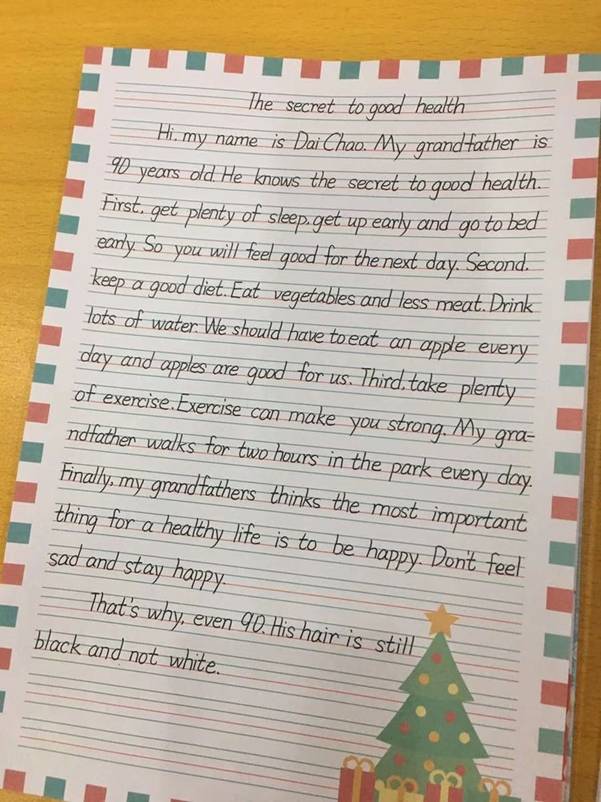 The secret to good health
Hi. my name is Dai Chao. My grandfather is
90 years old. He knows the secret to good health.
First. get plenty of sleep. get up early and go to bed
early. So you will feel good for the next day. Second.
keep a good diet. Eat vegetables and less meat. Drink
lots of water. We should have to eat an apple every
day and apples are good for us. Third. take plenty
of exercise. Exercise can make you strong. My gra-
ndfather walks for two hours in the park every day.
Finally, my grandfathers thinks the most important
thing for a healthy life is to be happy. Don't feel
sad and stay happy.
That's why, even 90. His hair is still
black and not white.